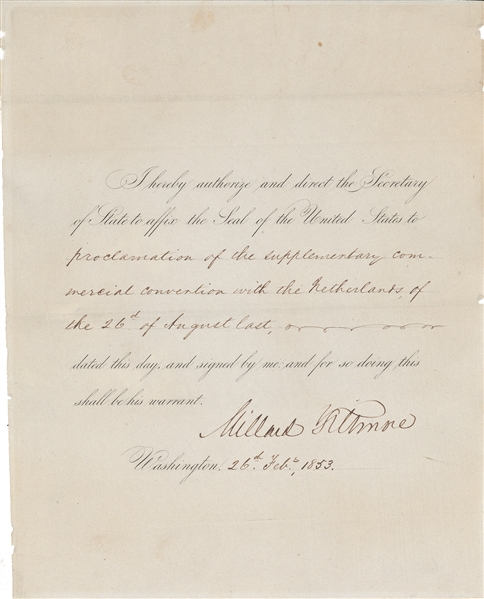 I hereby authorize and direct the Secretary
of State to affix the Seal of the United States to
proclamation of the supplementary com-
mercial convention with the Netherlands, of
the 26th of August last,
dated this day, and signed by me: and for so doing, this
shall be his warrant.
Millard Fillmore
Washington, 26th Feby, 1853.